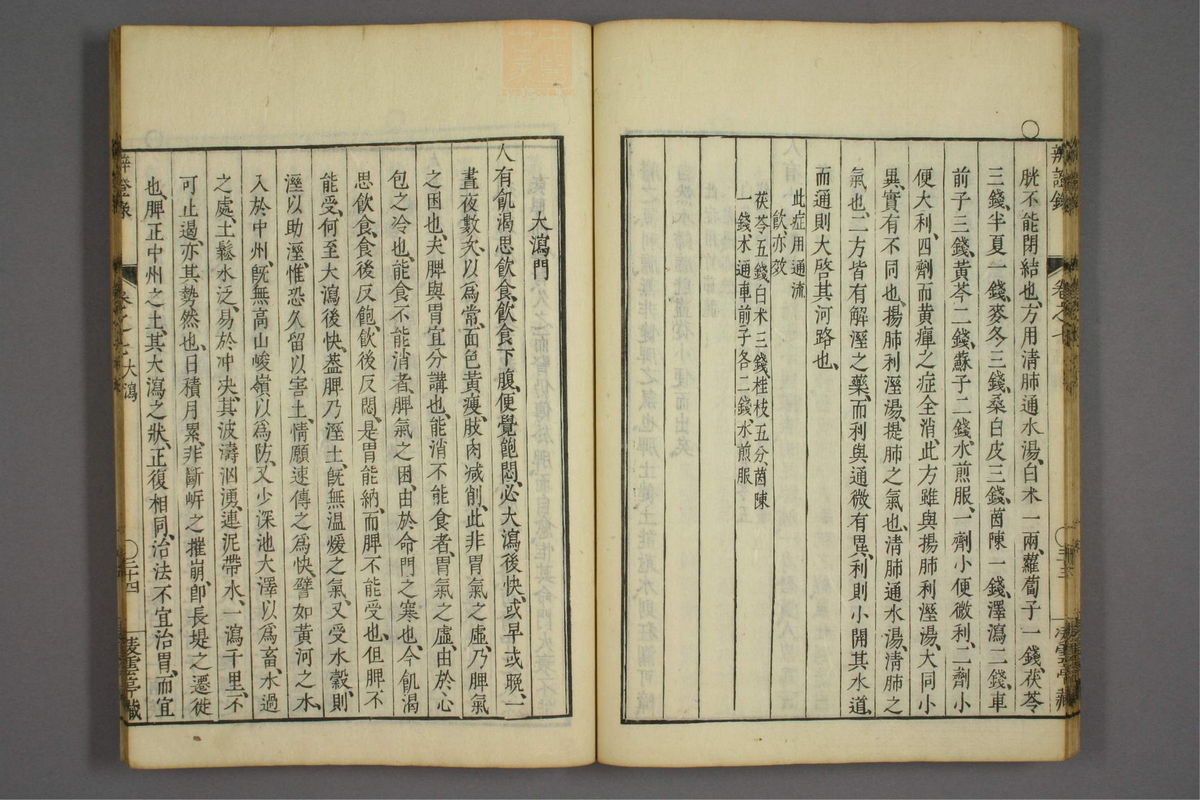 辨證錄
卷之七
胱不能閉結也、方用清肺通水湯、白朮一兩、蘿蔔子一錢、茯苓
三錢、半夏一錢、麥冬三錢、桑白皮三錢、茵陳一錢、澤瀉二錢、車
前子三錢、黃芩二錢、蘇子二錢、水煎服、一劑小便微利、二劑小
便大利、四劑而黃癉之症全消、此方雖與揚肺利溼湯、大同小
異、實有不同也、揚肺利溼湯、提肺之氣也、清肺通水湯、清肺之
氣也、二方皆有解溼之藥、而利與通微有異、利則小開其水道、
而通則大啓其河路也、
此症用通流
飲亦效
茯苓五錢、白朮三錢、桂枝五分、茵陳
一錢、木通、車前子各二錢、水煎服
大瀉門
人有飢渴思飲食、飲食下腹、便覺飽悶、必大瀉後快、或早或晚、一
晝夜數次、以爲常、面色黃瘦、肢肉减削、此非胃氣之虛、乃脾氣
之困也、夫脾與胃宜分講也、能消不能食者、胃氣之虛、由於心
包之冷也、能食不能消者、脾氣之困、由於命門之寒也、今飢渴
思飲食、食後反飽、飲後反悶、是胃能納、而脾不能受也、但脾不
能受、何至大瀉後快、葢脾乃溼土、旣無溫煖之氣、又受水穀、則
溼以助溼、惟恐久留以害土、情願速傳之爲快、譬如黃河之水、
入於中州、旣無高山峻嶺以爲防、又少深池大澤以爲畜、水過
之處、土鬆水泛、易於冲决、其波濤汹湧、連泥帶水、一瀉千里、不
可止遏、亦其勢然也、日積月累、非斷岸之摧崩、卽長堤之遷徙
也、脾正中州之土、其大瀉之狀、正復相同、治法不宜治胃、而宜
大瀉
三十四